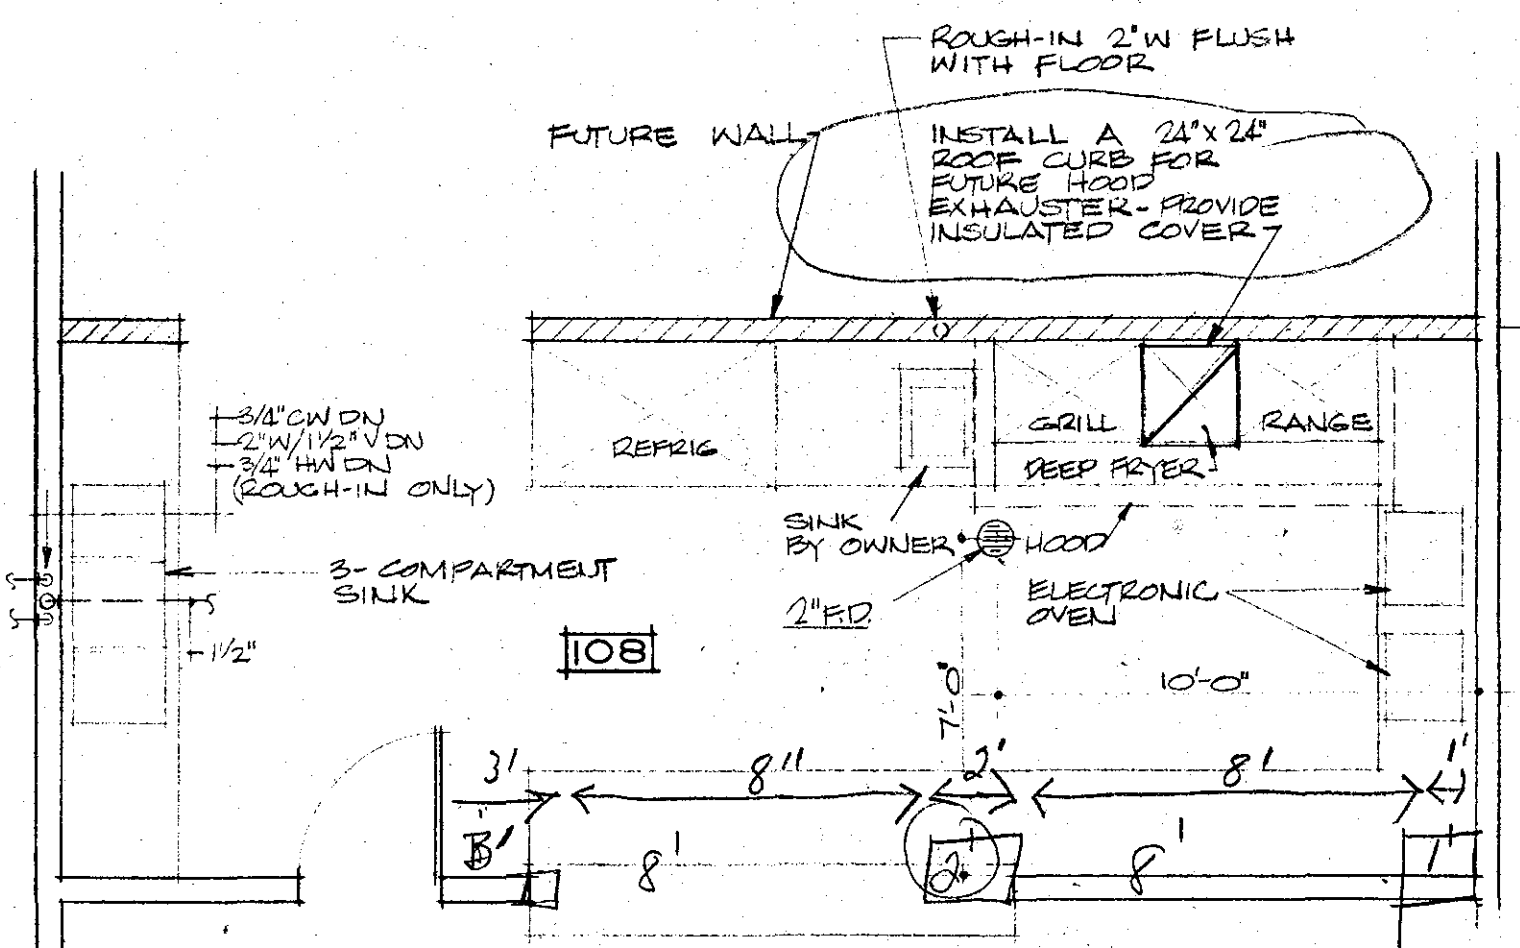 ROUGH-IN 2"W FLUSH
WITH FLOOR
FUTURE WALL
INSTALL A 24"x24"
ROOF CURB FOR
FUTURE HOOD
EXHAUSTER-PROVIDE
INSULATED COVER
3/4" CW DN
2"W/1 1/2" V DN
3/4" HW DN
(ROUGH-IN ONLY)
REFRIG
GRILL
RANGE
DEEP FRYER
SINK
BY OWNER
HOOD
3-COMPARTMENT
SINK
2"F.D.
ELECTRONIC
OVEN
108
1 1/2"
7'-0"
10'-0"
3'
8''
2'
8'
1'
8'
2
8'
1'